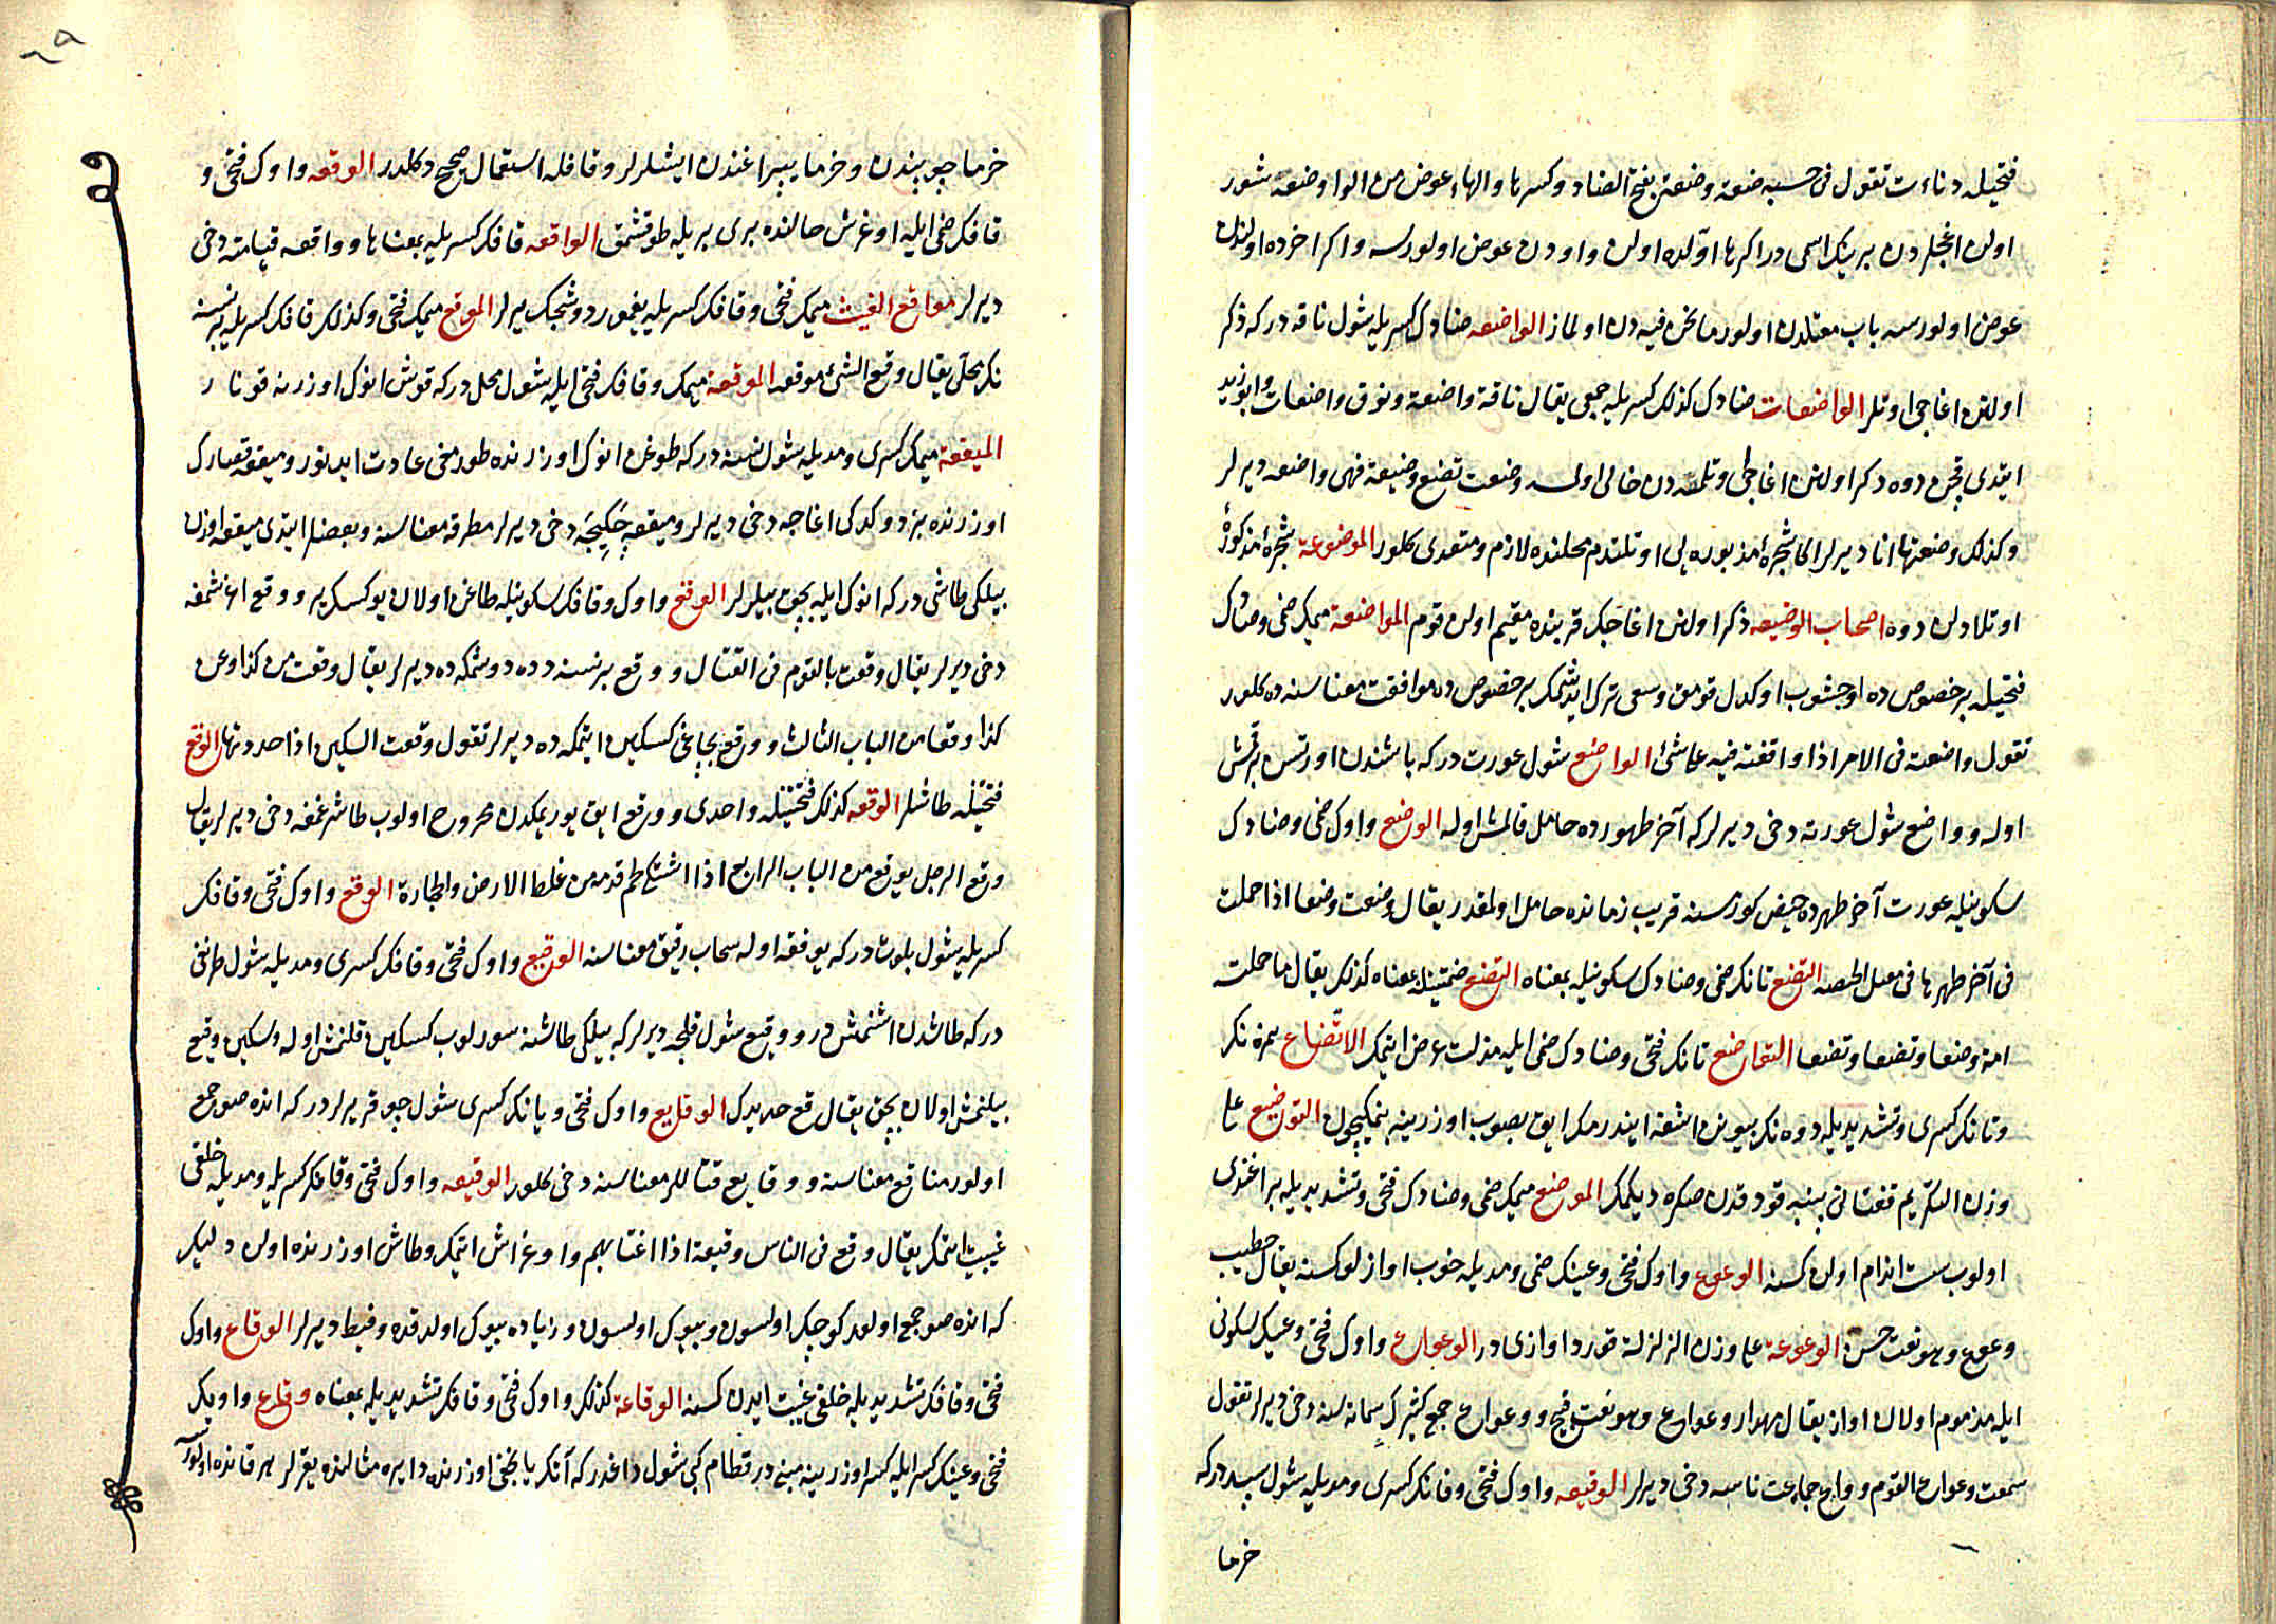 فتحيله دناءت تقول فى حسبه ضعة وضعة بفتح الضاد وكسرها والهاء عوض من الواو وضعه شور
اولن اغجلردن برينك اسمى در اكر ها اولده اولن واودن عوض اولورسه واكر اخرده اولندن
عوض اولورسه باب معتلدن اولور ما نحن فيه دن اولماز الواضعه ضادك كسريله شول ناقه دركه ذكر
اولنن اغاجى اوتلر الواضعات ضادك كذلك كسريله جمعى يقال ناقة واضعة ونوق واضعات وابو زيد
ايتدى قچن دوه ذكر اولنن اغاجى اوتلسه دن خالى اولسه وضعت تضع وضيعة فهى واضعه ديرلر
وكذلك وضعتها انا ديرلر الى شجرۀ مذبوره يى اوتلتدم محلنده لازم ومتعدى كلور الموضوعة شجرۀ مذكورۀ
اوتلادلن دوه اصحاب الوضيعه ذكر اولنن اغاجك قربنده مقيم اولن قوم المواضعة ميمك ضمى وضادك
فتحيله بر خصوص ده اوجشوب اوكدل قومق وسعى ترك ايدشمك بر خصوص ده موافقت معناسنه ده كلور
تقول واضعته فى الامر اذا وافقته فيه على شئ الواضع شول عورت دركه باشندن اورتسن برقمش
اوله وواضع شول عورته دخى ديرلر كه آخر طهورده حامل قالمش اوله الوضع واوك ضمى وضادك
سكونيله عورت آخر طهرده حيض كورسنه قريب زمانده حامل اولمقدر يقال وضعت وضعا اذا حملت
فى آخر طهرها فى مقبل الحيضه التضع تانك ضمى وضادك سكونيله بمعناه التضع ضمتيله بمعناه كذلك يقال ما حملته
امه وضعا وتضعا وتضعا التواضع تانك فتحى وضادك ضمى ايله مذلت عرض ايتمك الاتضاع همزه نك
وتانك كسرى وتشديديله دوه نك بيونن اشغه ايندرمك ايق بصوب اوزرينه بنمكيچون التوضيع على
وزن التكريم قفتانى پنبه قودقدن صكره ديكمك الموضع ميمك ضمى وضادك فتحى وتشديديله براغندى
اولوب سست اندام اولن كسنه الوعوع واوك فتحى وعينك ضمى ومديله خوب اوازلو كسنه يقال خطيب
وعوع وهو نعت حسن الوعوعة على وزن الزلزلة قورد اوازى در الوعواع واوك فتحى وعينك سكونى
ايله مذموم اولان اواز يقال مهذار وعواع وهو نعت قبيح ووعواع جمع كثيرك سماننه دخى ديرلر تقول
سمعت وعواع القوم ووعواع جماعت ناسه دخى ديرلر الوقيعه واوك فتحى وفانك كسرى ومديله شول سبددركه
خرما
خرما چوبندن وخرما يپراغندن ايشلرلر وقافله استعمال صحيح دكلدر الوقعه واوك فتحى و
قافك ضمى ايله اوغرش حالنده برى بريله طوقشمق الواقعه قافك كسريله بمعناها وواقعه قيامته دخى
ديرلر مواقع الغيث ميمك فتحى وقافك كسريله يغمور دوشجك يرلر الموقع ميمك فتحى وكذلك قافك كسريله برنسنه
نك محلى يقال وقع الشئ موقعه الموقعة ميمك وقافك فتحى ايله شول محل دركه قوش انوك اوزرنه قونار
الميقعة ميمك كسرى ومديله شول نسنه دركه طوغن انوك اوزرنده طورمغى عادت ايدنور وميقعه قصارك
اوزرنده بز دوكدكى اغاجه دخى ديرلر وميقعه چكيجه دخى ديرلر مطرقه معناسنه وبعضلر ايتدى ميقعه اوزن
بيلكى طاشى دركه انوك ايله بچق بيلرلر الوقع واوك وقافك سكونيله طاغن اولان يوكسك ير ووقع اغشمغه
دخى ديرلر يقال وقعت بالقوم فى القتال ووقع بر نسنه ده دوشمكه ده ديرلر يقال وقعت من كذا وعن
كذا وقعا من الباب الثالث ووقع بچاغى كسكين ايتمكه ده ديرلر تقول وقعت السكين اذا حددتها الوقع
فتحتيله طاشلر الوقعه كذلك فتحتيله واحدى ووقع ايق يوريمكدن مجروح اولوب طاشرغمغه دخى ديرلر يقال
وقع الرجل يوقع من الباب الرابع اذا اشتكى لحم قدمه من غلظ الارض والحجارة الوقع واوك فتحى وقافك
كسريله شول بلوت دركه يوفقه اوله سحاب رقيق معناسنه الوقيع واوك فتحى وقافك كسرى ومديله شول طرنغى
دركه طاشدن اشنمش در ووقيع شول قلجه ديرلر كه بيلكى طاشنه سورلوب كسكين قلنمش اوله وسكين وقيع
بيلنمش اولان بچق يقال قع حديدك الوقايع واوك فتحى ويانك كسرى شول چوقر يرلر در كه انده صو جمع
اولور مناقع معناسنه ووقايع قتاللر معناسنه دخى كلور الوقيعه واوك فتحى وقافك كسريله ومديله خلقى
غيبت ايتمك يقال وقع فى الناس وقيعة اذا اغتابهم واوغراش ايتمك وطاش اوزرنده اولن دليكر
كه انده صو جمع اولور كوچك اولسون وبيوك اولسون وزياده بيوك اولدقده وقيط ديرلر الوقاع واوك
فتحى وقافك تشديديله خلقى غيبت ايدن كسنه الوقاعة كذلك واوك فتحى وقافك تشديديله بمعناه وقاع واويك
فتحى وعينك كسر ايله كسر اوزرينه مبنى در قطام كبى شول داغدر كه آنك يانجغى اوزرنده دايره مثالنده يقرلر هر قانده اولورسه